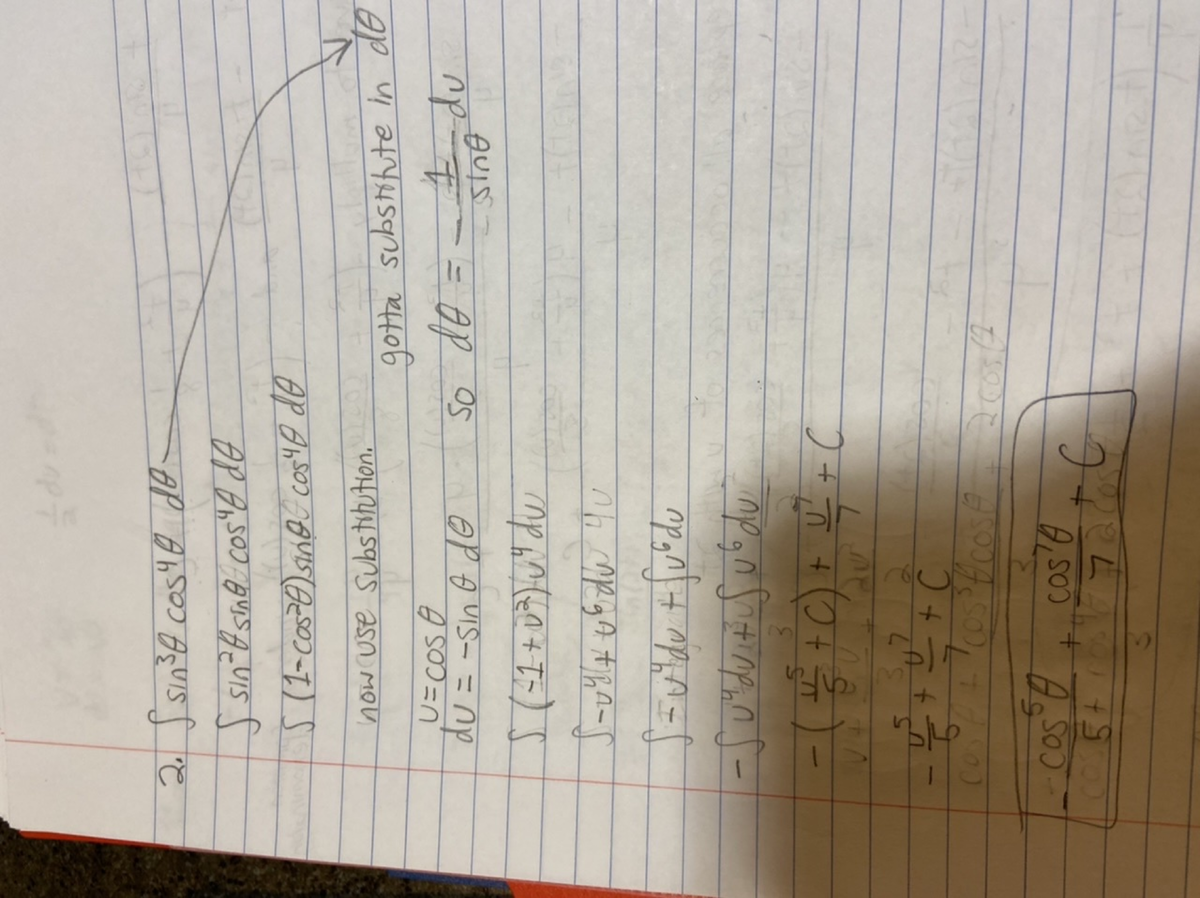 2. ∫ sin³θ cos⁴θ dθ
∫ sin²θ sinθ cos⁴θ dθ
∫ (1-cos²θ) sinθ cos⁴θ dθ
now use substitution.
gotta substitute in dθ
u = cosθ
du = -sinθ dθ so dθ = -1/sinθ du
∫ (-1+u²) u⁴ du
∫ -u⁴ + u⁶ du
∫ -u⁴ du + ∫ u⁶ du
- ∫ u⁴ du + ∫ u⁶ du
- (u⁵/5 + C) + u⁷/7 + C
- u⁵/5 + u⁷/7 + C
- cos⁵θ/5 + cos⁷θ/7 + C